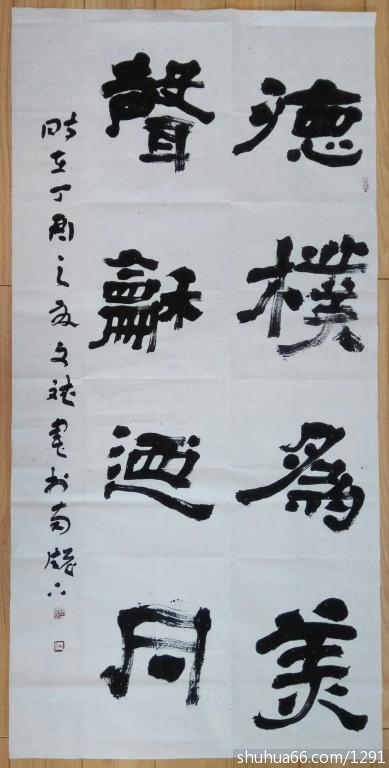 德樸為美
聲龢迺同
時在丁酉之夏文斌書於南牖下
shuhua66.com/1291